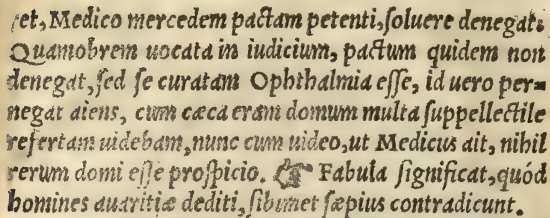 ret, Medico mercedem pactam petenti, soluere denegat.
Quamobrem uocata in iudicium, pactum quidem non
denegat, sed se curatam Ophthalmia esse, id uero per=
negat aiens, cum cæca eram domum multa suppellectile
refertam uidebam, nunc cum uideo, ut Medicus ait, nihil
rerum domi esse prospicio. ☞ Fabula significat, quód
homines auaritiæ dediti, sibimet sæpius contradicunt.